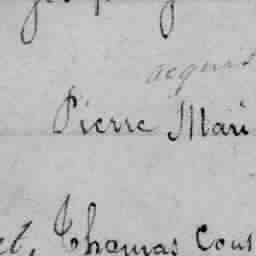 acquis
Pierre Mari
et, Thomas Cous